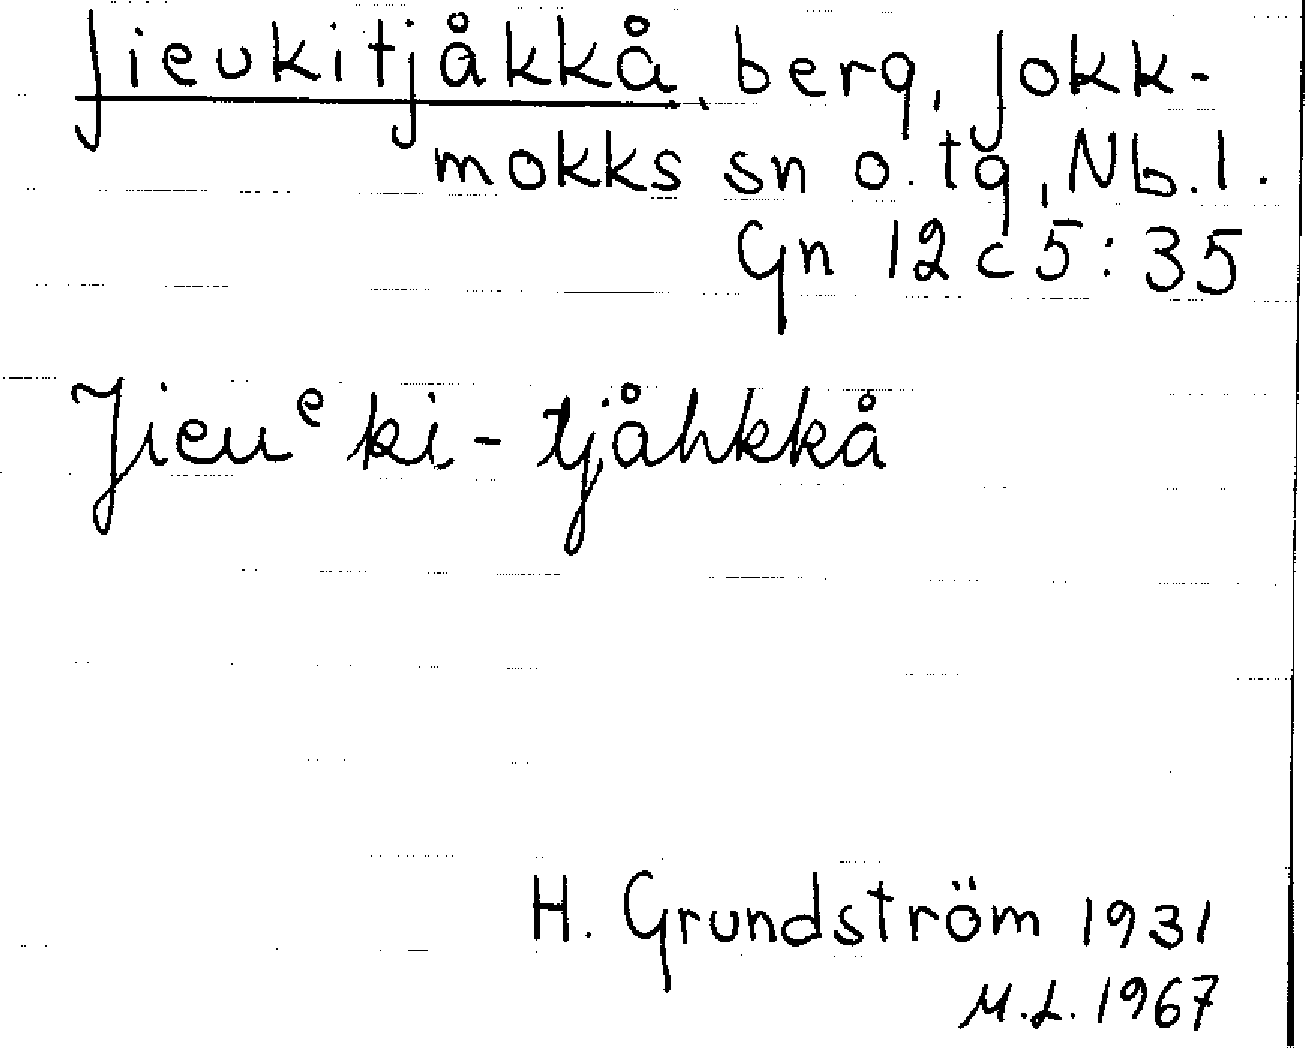 Jieukitjåkkå, berg, Jokk-
mokks sn o. tg, Nb. l.
Gn 12 c 5:35
Jieuᵉki-tjåhkkå
H. Grundström 1931
M.L. 1967